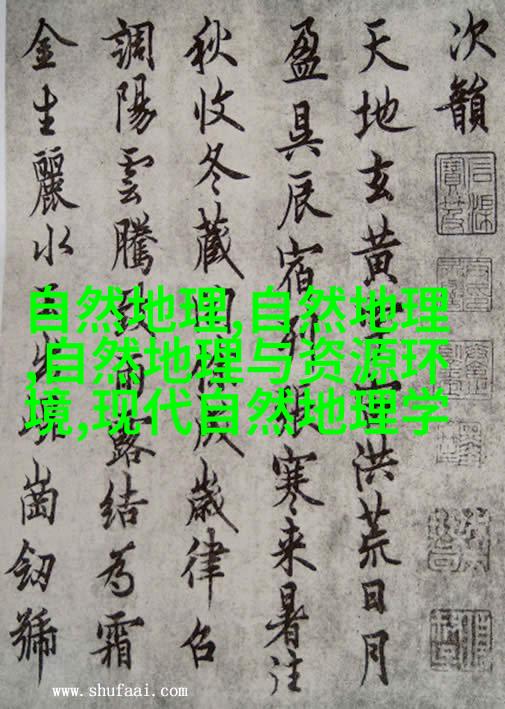 次韻
天地玄黃洪荒日月
盈昃辰宿列寒來暑往
秋收冬藏閏歲律召
調陽雲騰露結為霜
金生麗水崗劍號
自然地理,自然地理
,自然地理与资源环
境,现代自然地理学
www.shufaai.com